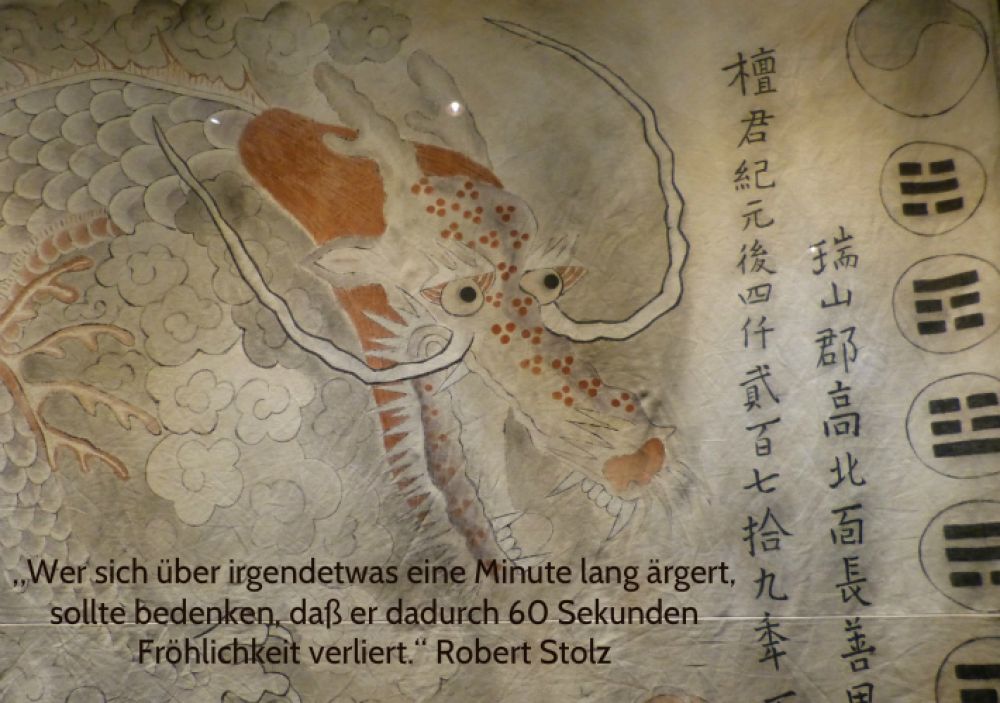 瑞山郡高北面長善
檀君紀元後四仟貳百七拾九秊
„Wer sich über irgendetwas eine Minute lang ärgert,
sollte bedenken, daß er dadurch 60 Sekunden
Fröhlichkeit verliert.“ Robert Stolz